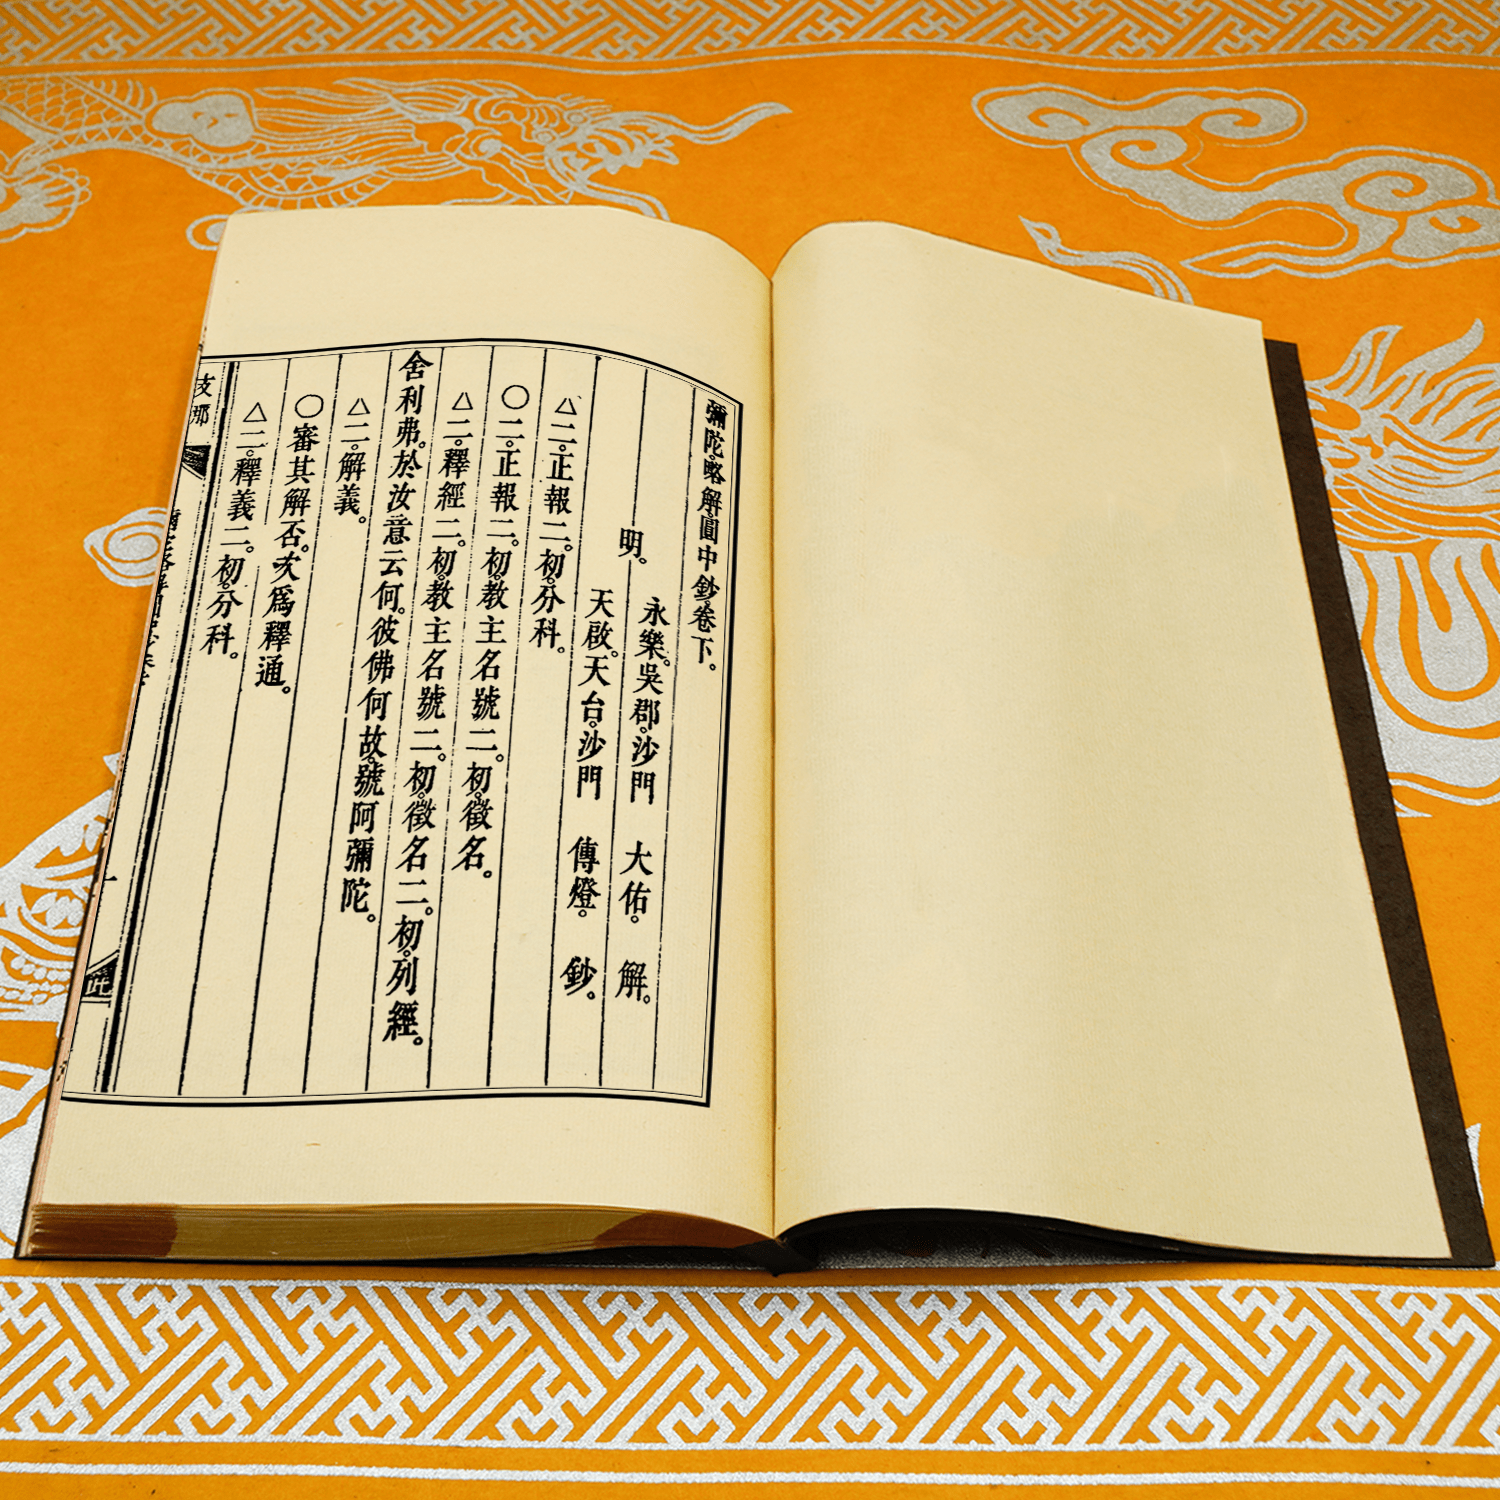 彌陀。略解。圓中鈔。卷下。
明。
永樂。吳郡。沙門 大佑。 解。
天啟。天台。沙門 傳燈。 鈔。
△二。正報二。初。分科。
○二。正報二。初。教主名號二。初。徵名。
△二。釋經二。初。教主名號二。初。徵名二。初。列經。
舍利弗。於汝意云何。彼佛何故。號阿彌陀。
△二。解義。
○審其解否。次爲釋通。
△二。釋義二。初。分科。
支那